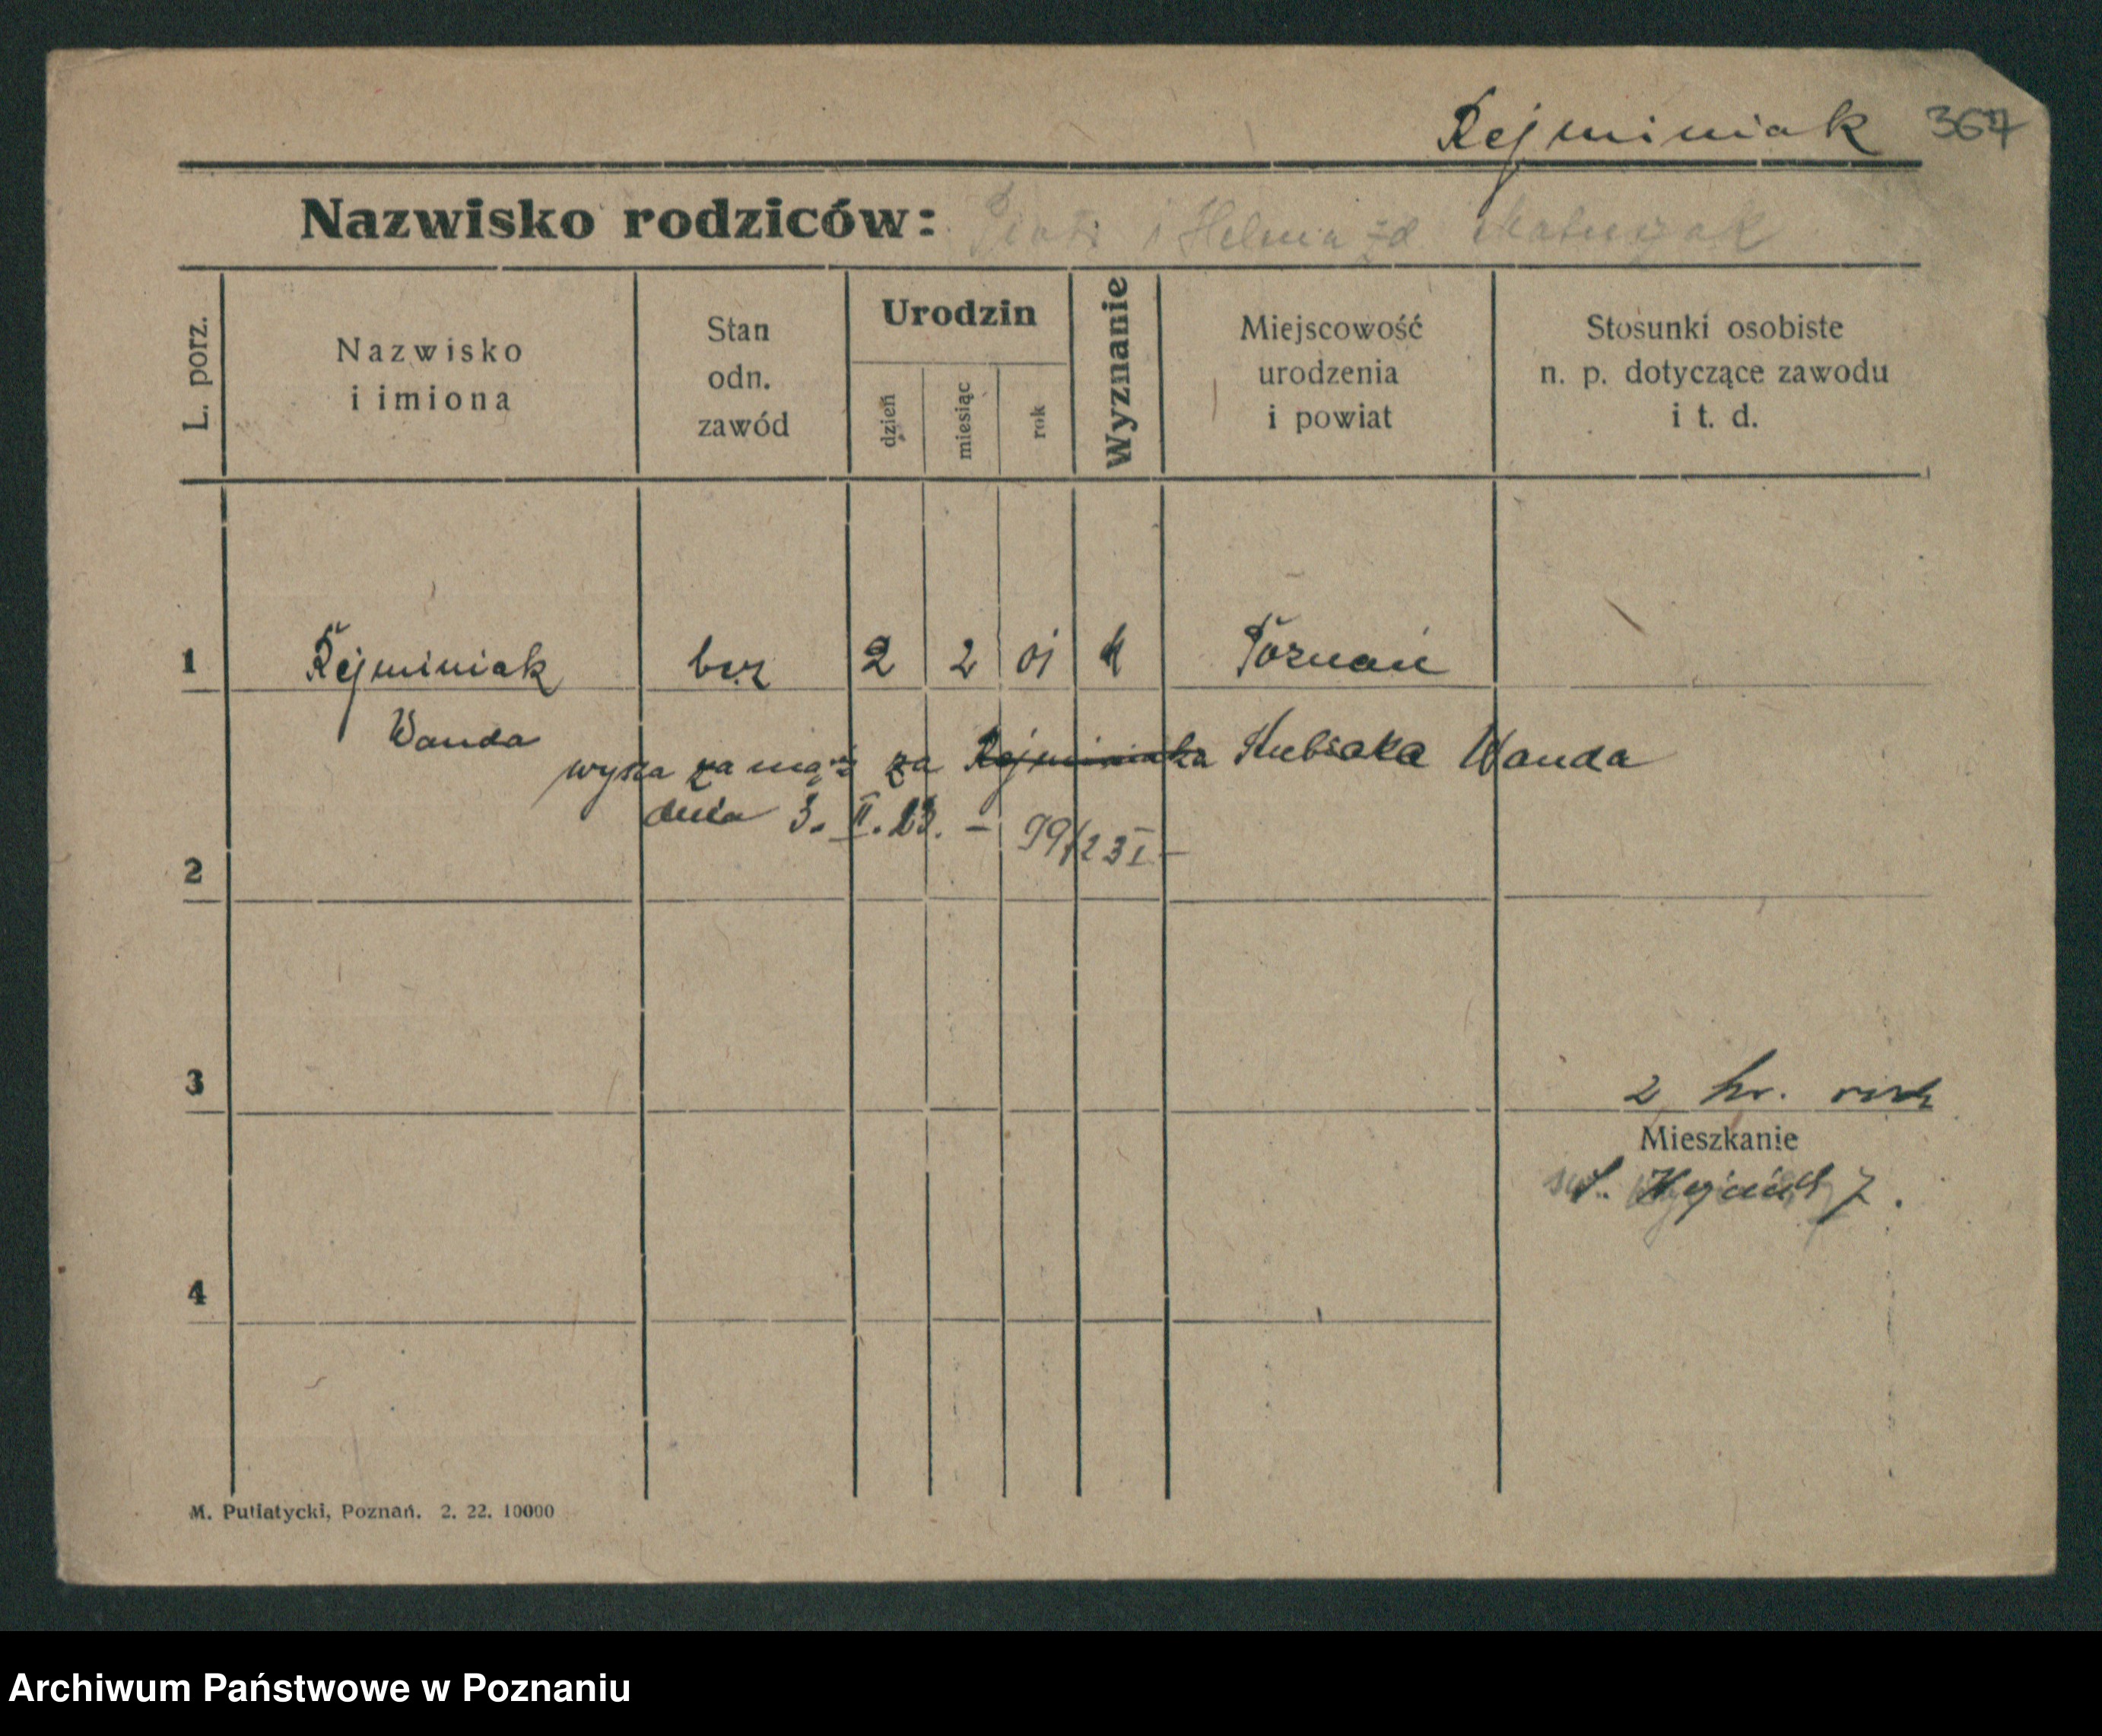 Rejminiak 367
Nazwisko rodziców: Piotr i Helena zd
L. porz.
Nazwisko
i imiona
Stan
odn.
zawód
Urodzin
dzień
miesiąc
rok
Wyznanie
Miejscowość
urodzenia
i powiat
Stosunki osobiste
n. p. dotyczące zawodu
i t. d.
1 Rejminiak bez 2 2 01 k Poznań
Wanda
wysza za mąż za Rejminiaka Wanda
dnia 3. II. 23. – 99/23 I –
2
3
2 kr.
Mieszkanie
7.
4
M. Putiatycki, Poznań. 2. 22. 10000
Archiwum Państwowe w Poznaniu